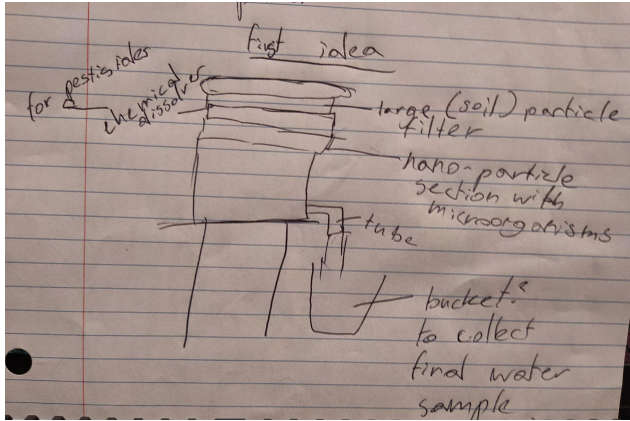 first idea
for pestisides
chemical
dissolver
large (soil) particle
filter
nano-particle
section with
microorganisms
tube
bucket?
to collect
final water
sample